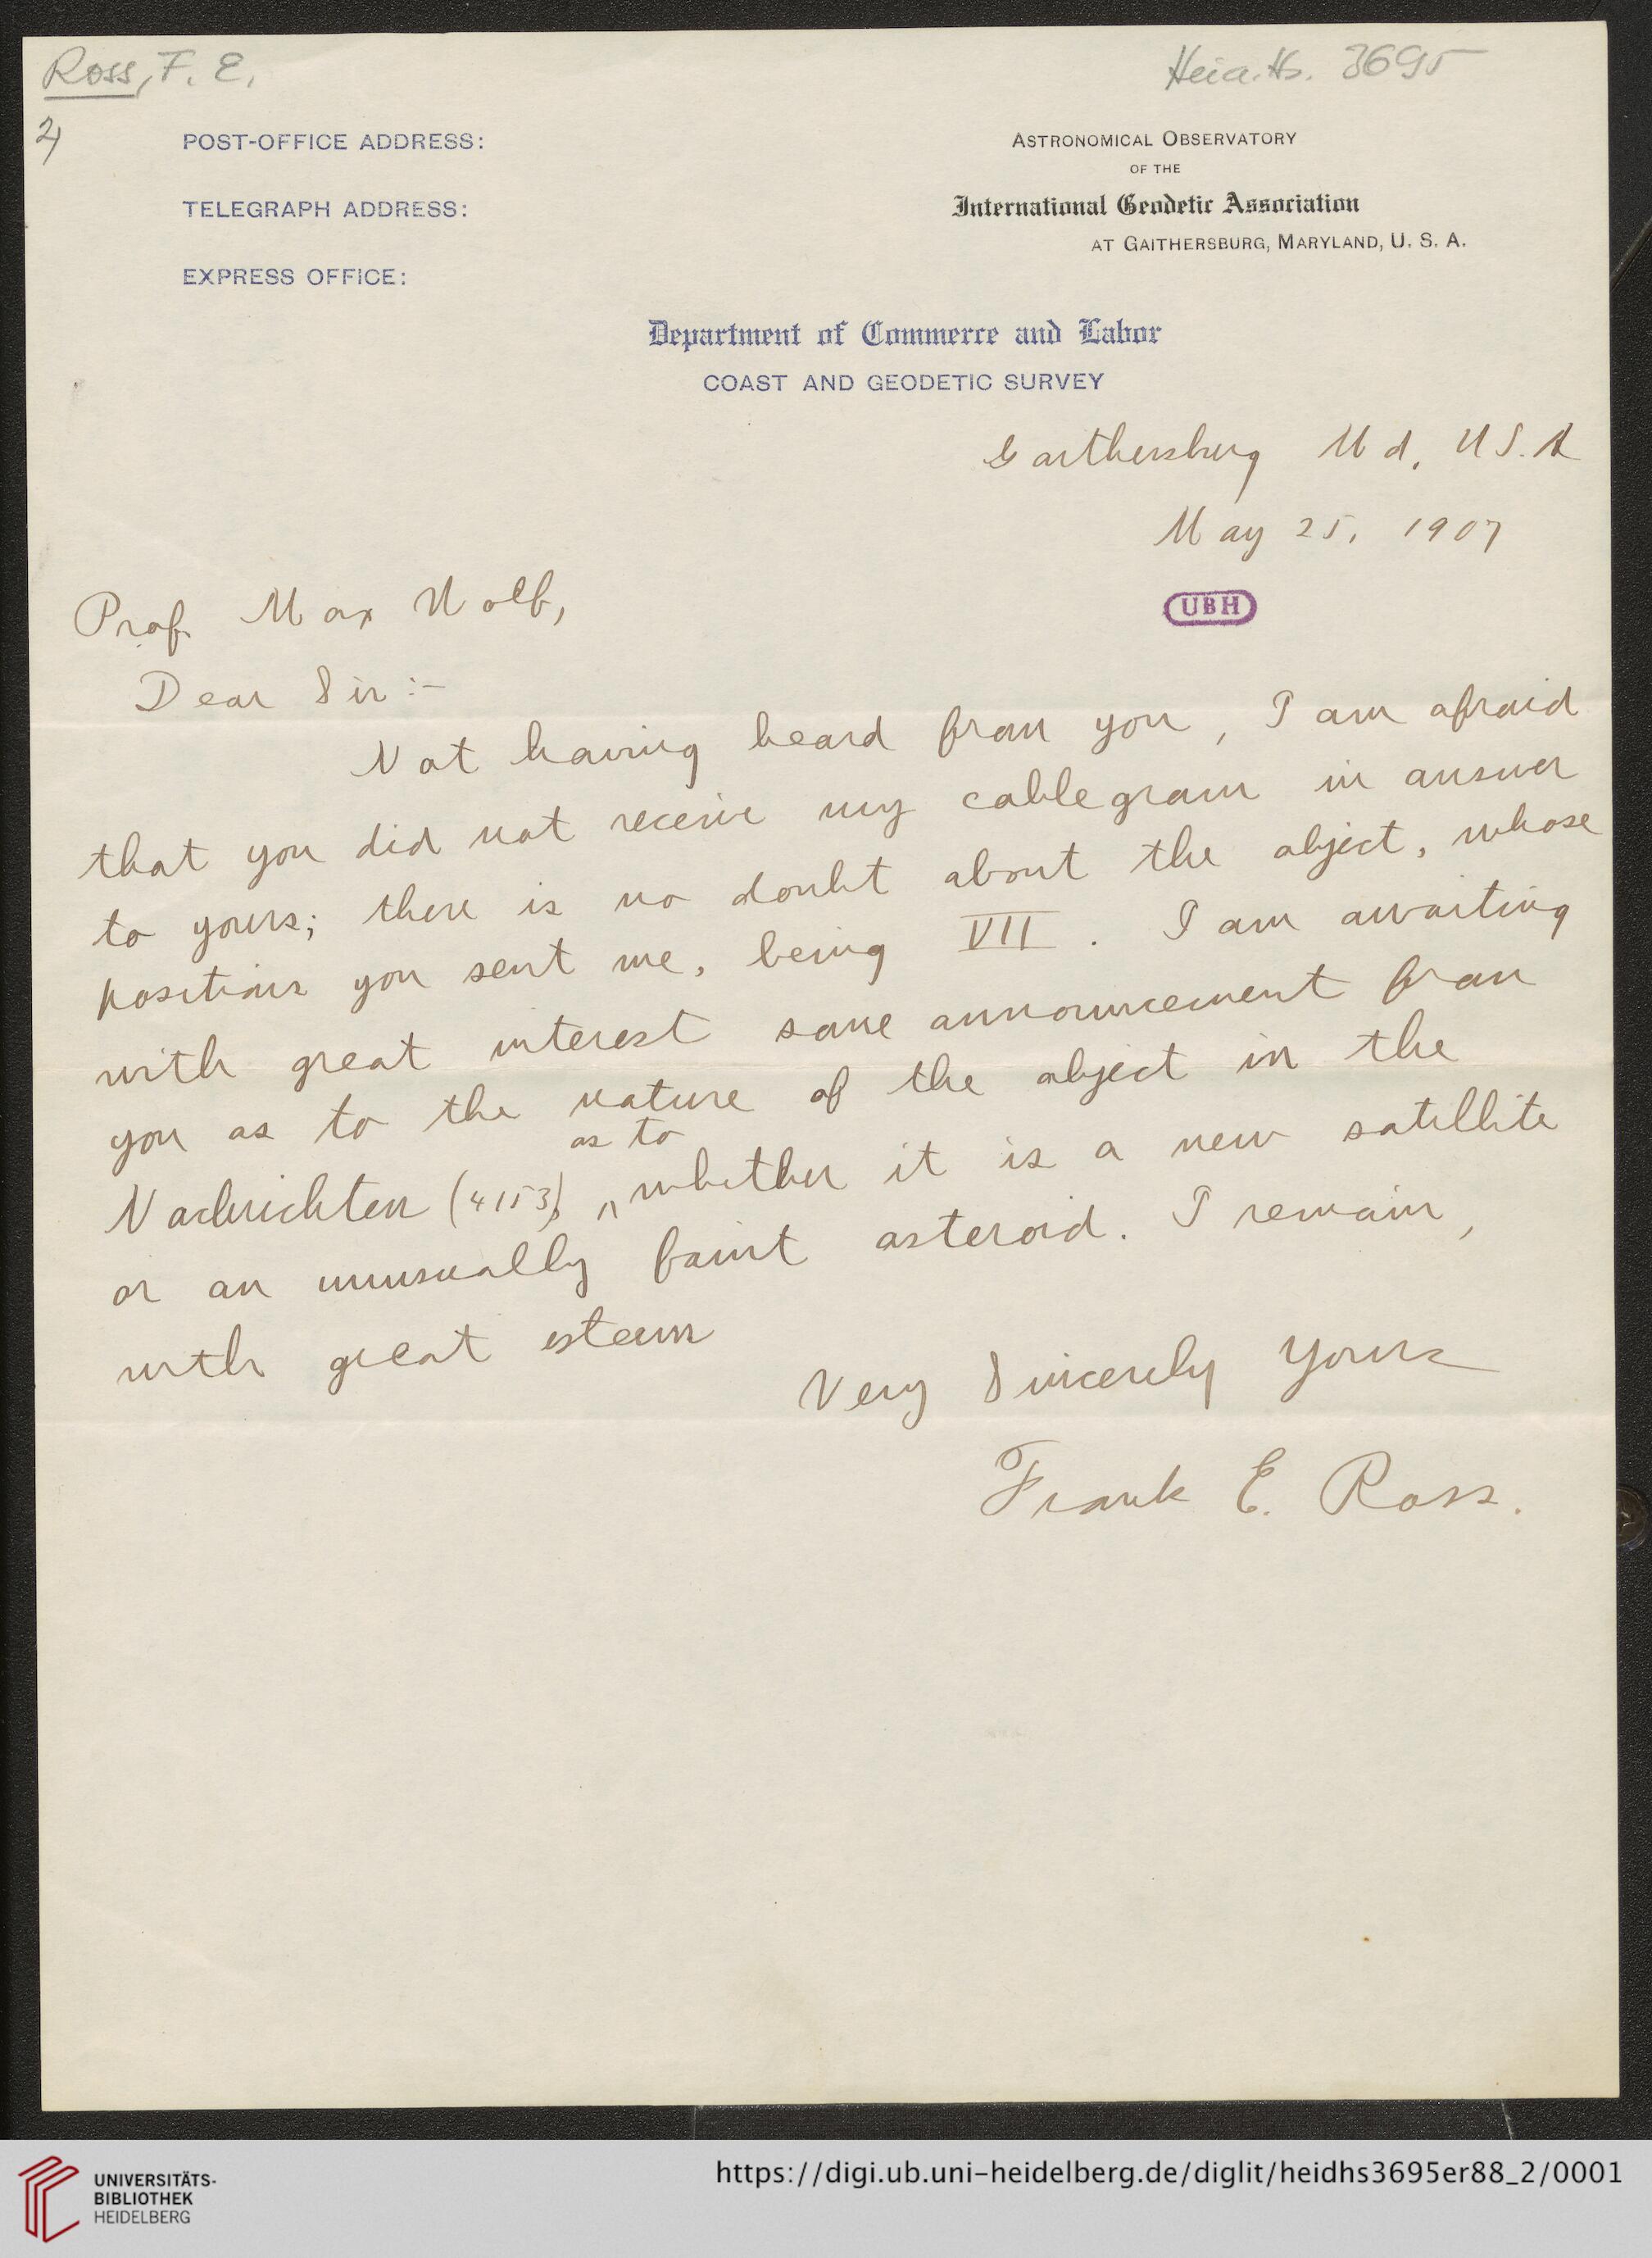 Ross, F. E.
Heid. Hs. 3695
2)
POST-OFFICE ADDRESS:
TELEGRAPH ADDRESS:
EXPRESS OFFICE:
ASTRONOMICAL OBSERVATORY
OF THE
International Geodetic Association
AT GAITHERSBURG, MARYLAND, U. S. A.
Department of Commerce and Labor
COAST AND GEODETIC SURVEY
Gaithersburg Md, U S. A
May 25, 1907
UBH
Prof. Max Wolf,
Dear Sir :-
Not having heard from you, I am afraid
that you did not receive my cablegram in answer
to yours; there is no doubt about the object, whose
positions you sent me, being VII. I am awaiting
with great interest some announcement from
you as to the nature of the object in the
as to
Nachrichten (4153), whether it is a new satellite
or an unusually faint asteroid. I remain,
with great esteem
Very Sincerely Yours
Frank E. Ross.
UNIVERSITÄTS-
BIBLIOTHEK
HEIDELBERG
https://digi.ub.uni-heidelberg.de/diglit/heidhs3695er88_2/0001